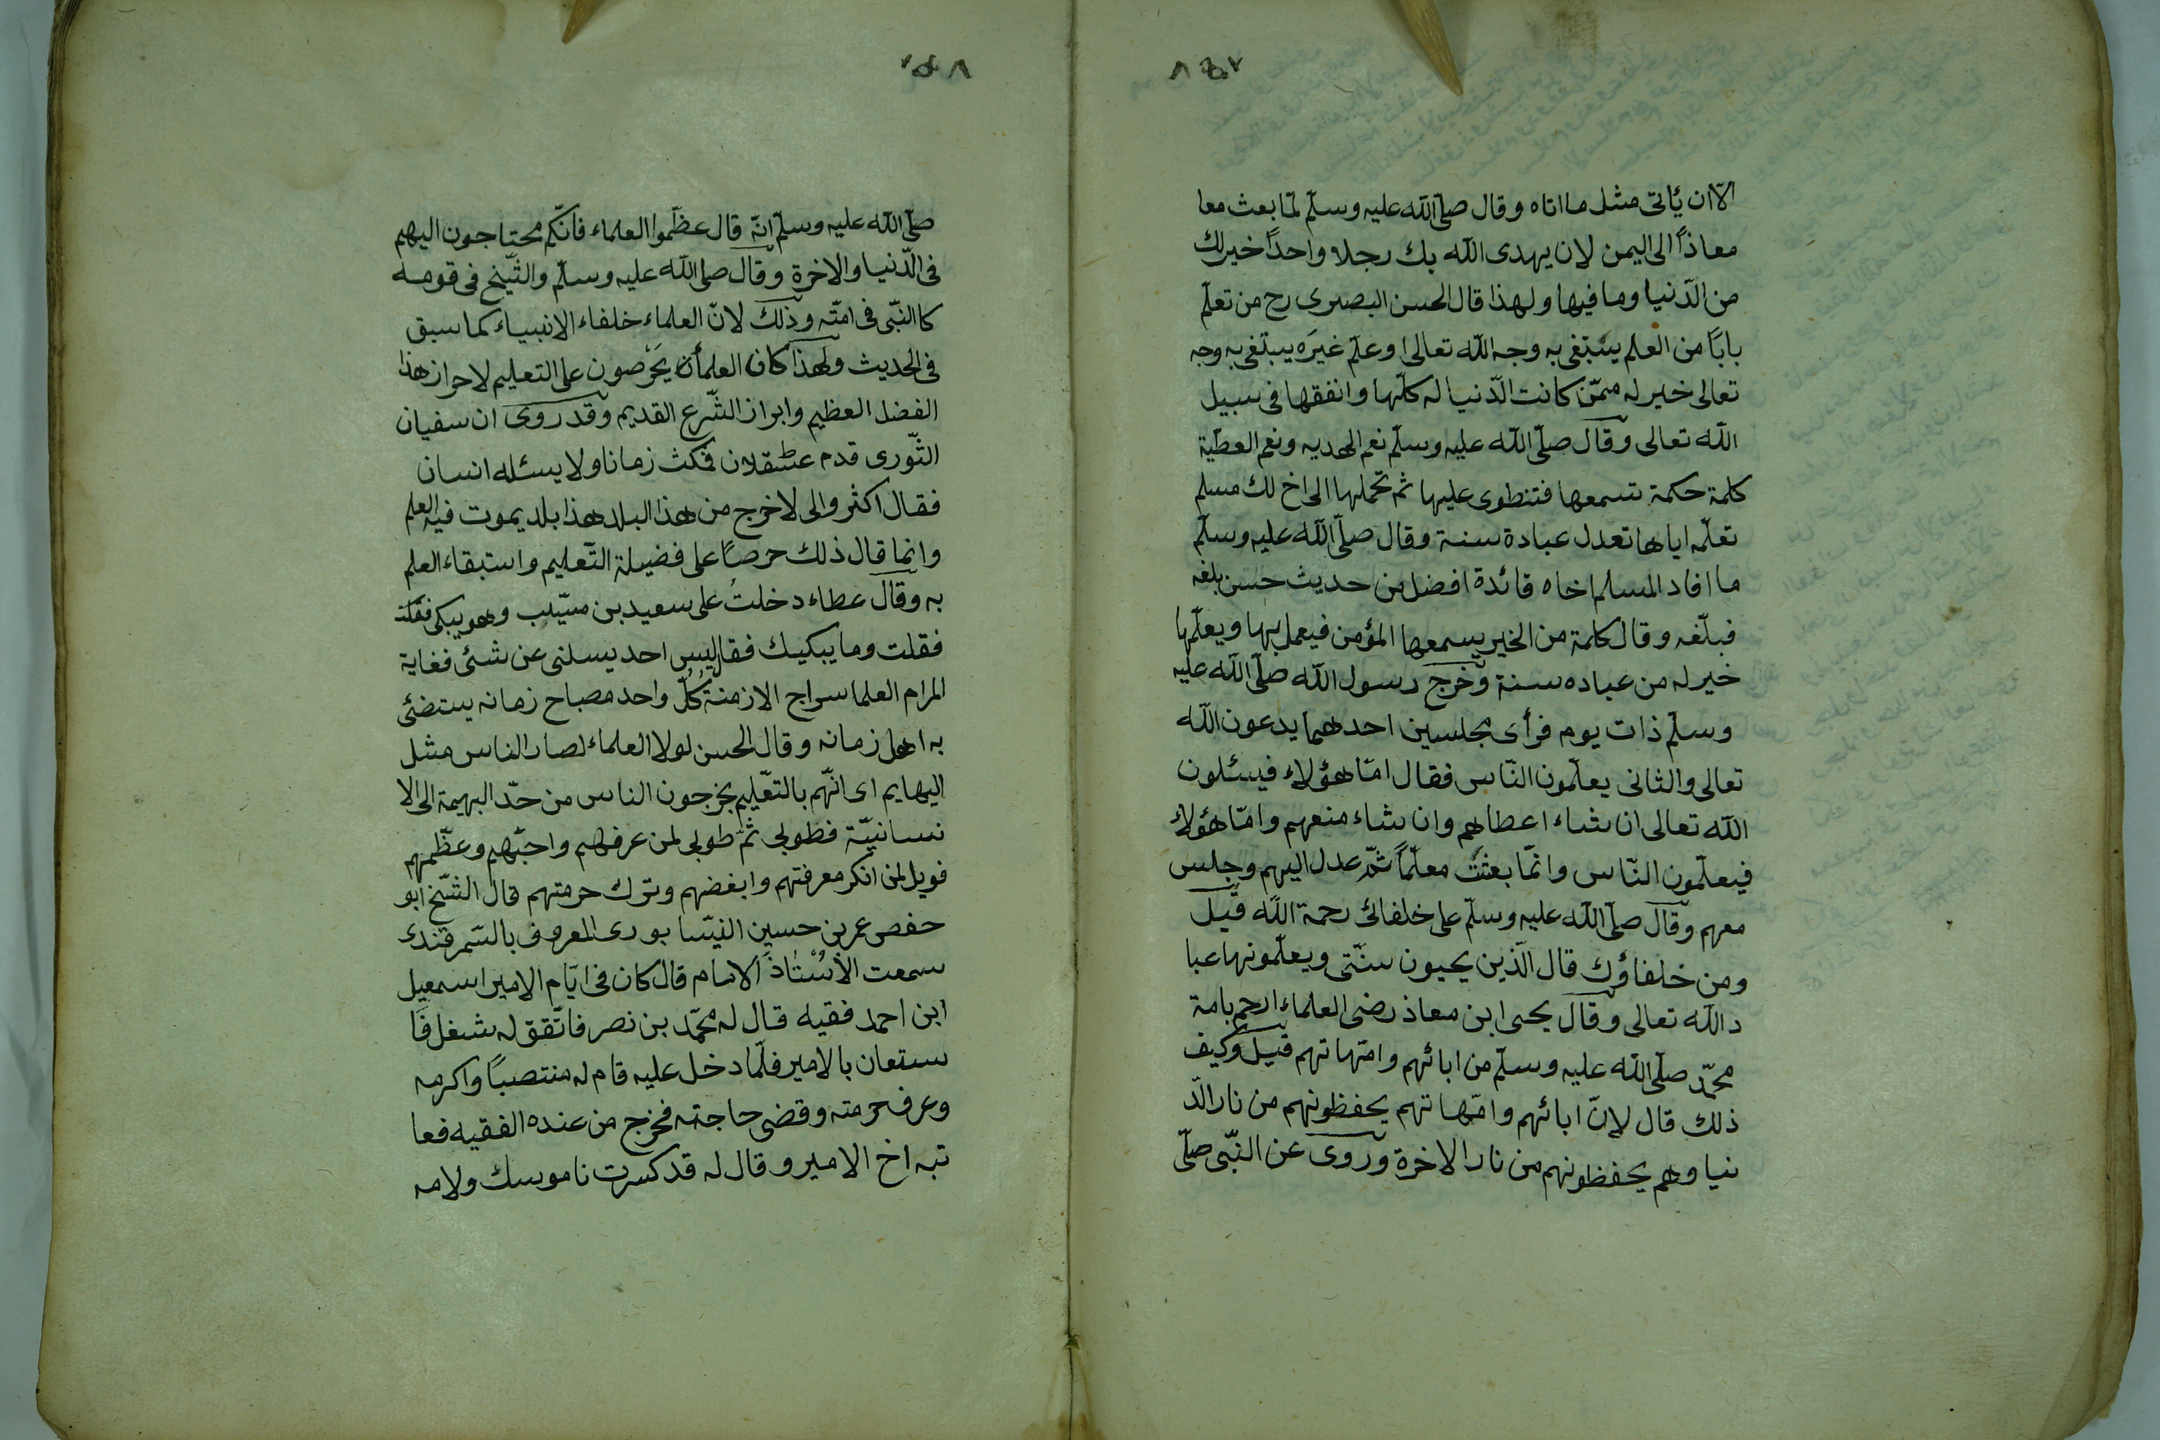 ٨٥٧
الّا ان يأتى مثل ما اتاه وقال صلّى اللّه عليه وسلّم لمّا بعث معا
معاذاً الى اليمن لان يهدى اللّه بك رجلا واحداً خير لك
من الدّنيا وما فيها ولهذا قال الحسن البصرى رح من تعلّم
بابًا من العلم يبتغى به وجه اللّه تعالى او علّم غيرَه يبتغى به وجه
تعالى خير له ممّن كانت الدّنيا له كلّها وانفقها فى سبيل
اللّه تعالى وقال صلّى اللّه عليه وسلّم نعم الهديه ونعم العطيّة
كلمة حكمة تسمعها فتنطوى عليها ثم تحملها الى اخ لك مسلم
تعلّمه اياها تعدل عبادة سنة وقال صلّى اللّه عليه وسلّم
ما افاد المسلم اخاه فائدة افضل من حديث حسن بلغه
فبلّغه وقال كلمة من الخير يسمعها المؤمن فيعمل بها ويعلّمها
خير له من عباده سنة وخرج رسول اللّه صلّى اللّه عليه
وسلّم ذات يوم فرأى مجلسين احدهما يدعون اللّه
تعالى والثانى يعلّمون النّاس فقال امّا هؤلاء فيسئلون
اللّه تعالى ان شاء اعطاهم وان شاء منعهم وامّا هؤلاء
فيعلّمون النّاس وانّما بعثت معلّماً ثمّ عدل اليهم وجلس
معهم وقال صلّى اللّه عليه وسلّم على خلفائى رحمة اللّه قيل
ومن خلفاؤك قال الّذين يحيون سنّتى ويعلّمونها عبا
د اللّه تعالى وقال يحيى ابن معاذ رضى العلماء ارحم بامة
محمّد صلّى اللّه عليه وسلّم من ابائهم وامّهاتهم قيل وكيف
ذلك قال لانّ ابائهم وامّهاتهم يحفظونهم من نار الدّ
نيا وهم يحفظونهم من نار الاخرة وروى عن النّبّى صلّى
٨٥٨
صلّى اللّه عليه وسلّم انّه قال عظّموا العلماء فانّكم محتاجون اليهم
فى الدّنيا والاخرة وقال صلى اللّه عليه وسلّم والشّيخ فى قومه
كا النّبّى فى امّته وذلك لانّ العلماء خلفاء الانبياء كما سبق
فى الحديث ولهذا كان العلمأ يَحْرصون على التعليم لاحراز هذا
الفضل العظيم وابراز الشّرع القديم وقد روى ان سفيان
الثّورى قدم عسقلان فمكث زمانا ولا يسئله انسان
فقال اكثروا لى لاخرج من هذا البلد هذا بلد يموت فيه العلم
وانما قال ذلك حرصًا على فضيلة التّعليم واستبقاء العلم
به وقال عطاء دخلتُ على سعيد بن مسيّب وهو يبكى فقلت
فقلت وما يبكيك فقال ليس احد يسلنى عن شئى فغاية
المرام العلما سراج الازمنة كُلّ واحد مصباح زمانه يستضئى
به اهل زمانه وقال الحسن لولا العلماء لصار الناس مثل
البهايم اى انّهم بالتعّليم يخرجون الناس من حدّ البهيمة الى الا
نسانيّة فطوبى ثمّ طوبى لمن عرفهم واحبّهم وعظّمهم
فويل لمن انكر معرفتهم وابغضهم وترك حرمتهم قال الشّيخ ابو
حفص عمر بن حسين النيّسابورى المعروف بالسّمرقندى
سمعت الأُسْتٰاذَ الامام قال كان فى ايّام الامير اسمعيل
ابن احمد فقيه قال له محمّد بن نصر فاتّفق له شغل فَا
ستعان بالامير فلمّا دخل عليه قام له منتصبًا واكرمه
وعرف حرمته وقضى حاجته فخرج من عنده الفقيه فعا
تبه اخ الامير وقال له قد كسرت ناموسك ولامه